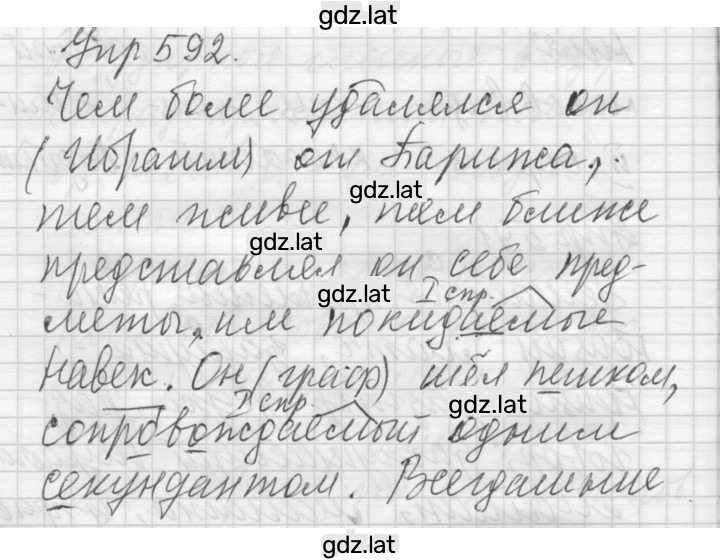 gdz.lat
Упр 592.
Чем более удалялся он
(Ибрагим) от Парижа,
тем живее, тем ближе
gdz.lat
gdz.lat
представлял он себе пред-
gdz.lat
I спр.
меты, им покидаемые
навек. Он (граф) шёл пешком,
I спр.
gdz.lat
сопровождаемый одним
секундантом. Всегдашние
gdz.lat